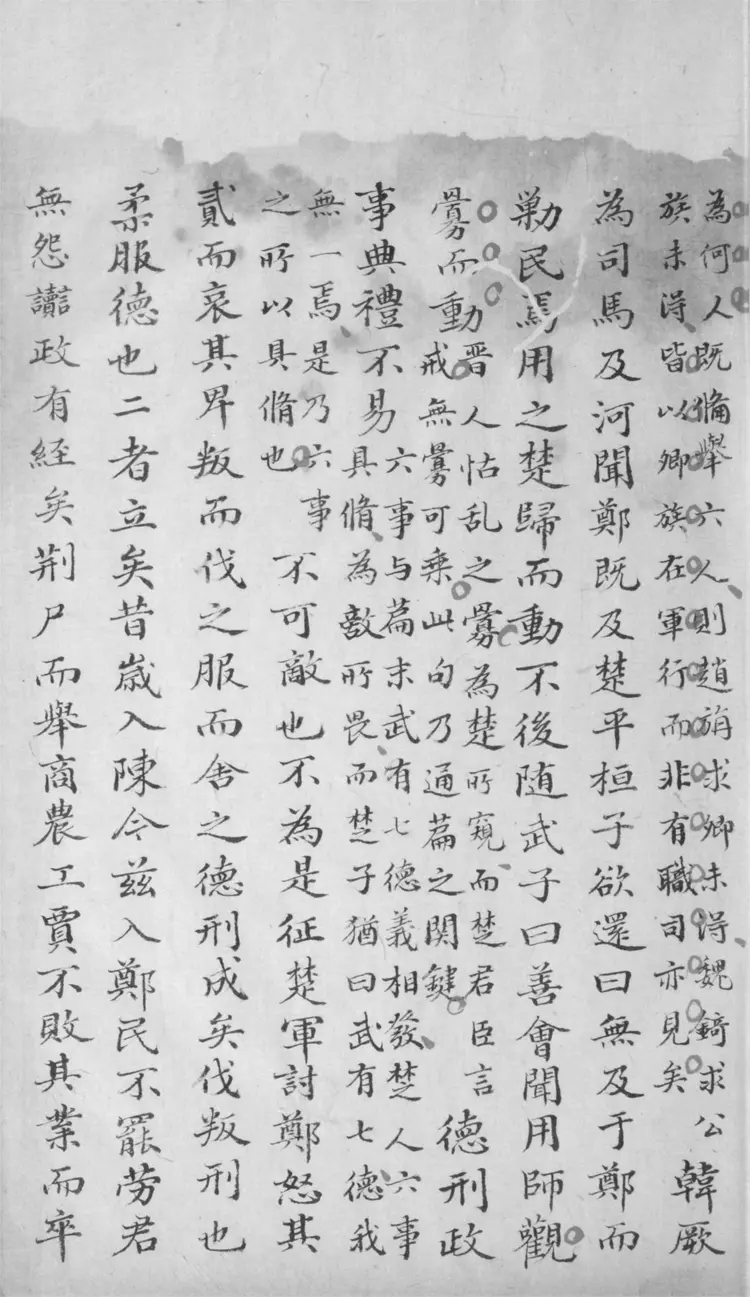 為何人既備舉六人則趙旃求卿未得魏錡求公
族未得皆以卿族在軍行而非有職司亦見矣
韓厥
為司馬及河聞鄭既及楚平桓子欲還曰無及于鄭而
勦民焉用之楚歸而動不後随武子曰善會聞用師觀
釁而動
晋人怙乱之釁為楚所窺而楚君臣言
戒無釁可乗此句乃通篇之関鍵
德刑政
事典禮不易
六事与篇末武有七德義相發楚人六事
具脩為敵所畏而楚子猶曰武有七德我
無一焉是乃六事
之所以具脩也
不可敵也不為是征楚軍討鄭怒其
貳而哀其卑叛而伐之服而舍之德刑成矣伐叛刑也
柔服德也二者立矣昔歳入陳今茲入鄭民不罷劳君
無怨讟政有経矣荆尸而舉商農工賈不敗其業而卒